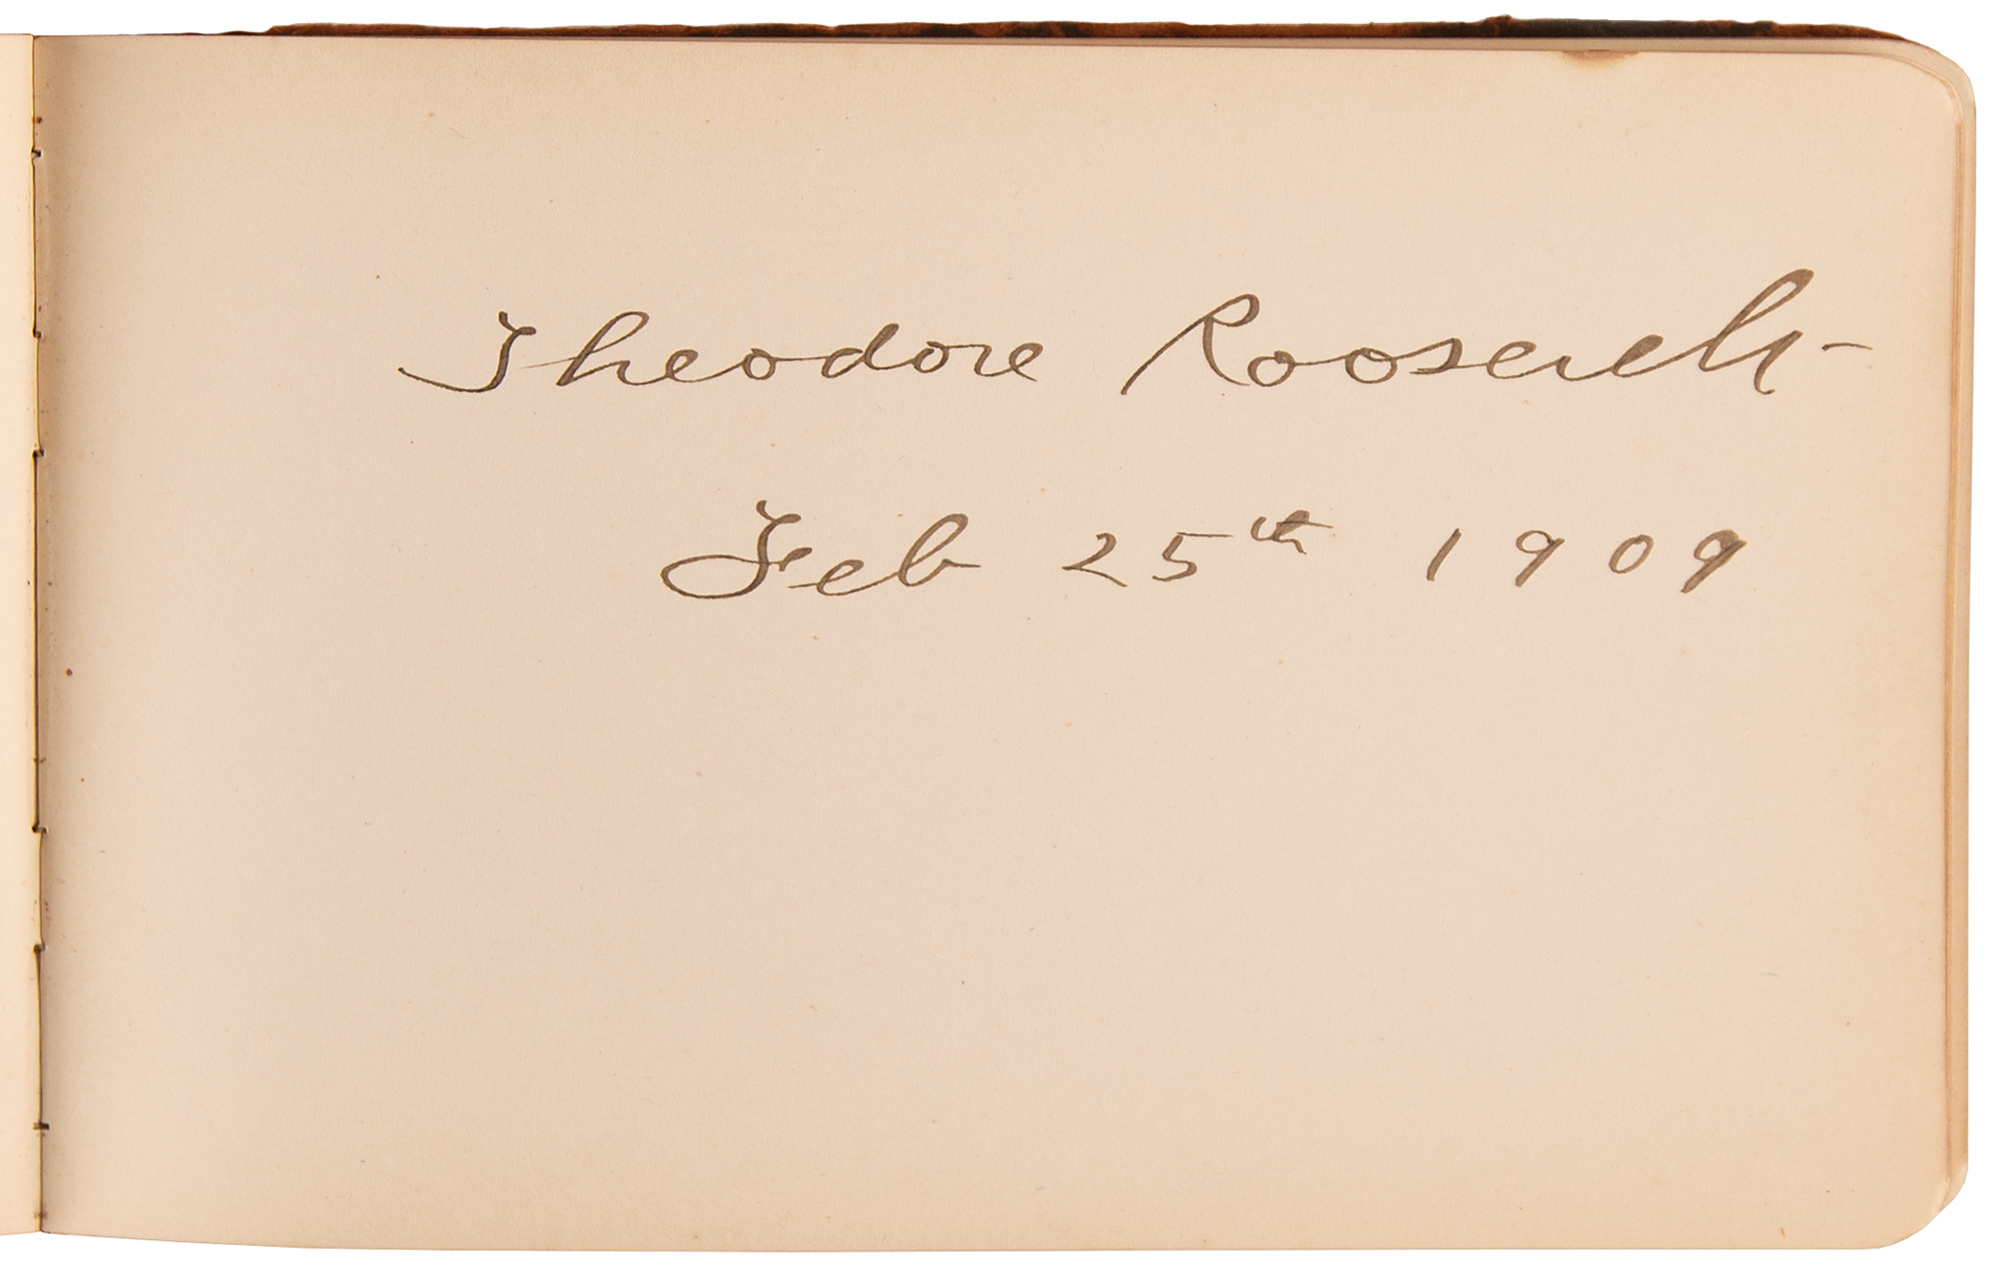 Theodore Roosevelt
Feb 25th 1909